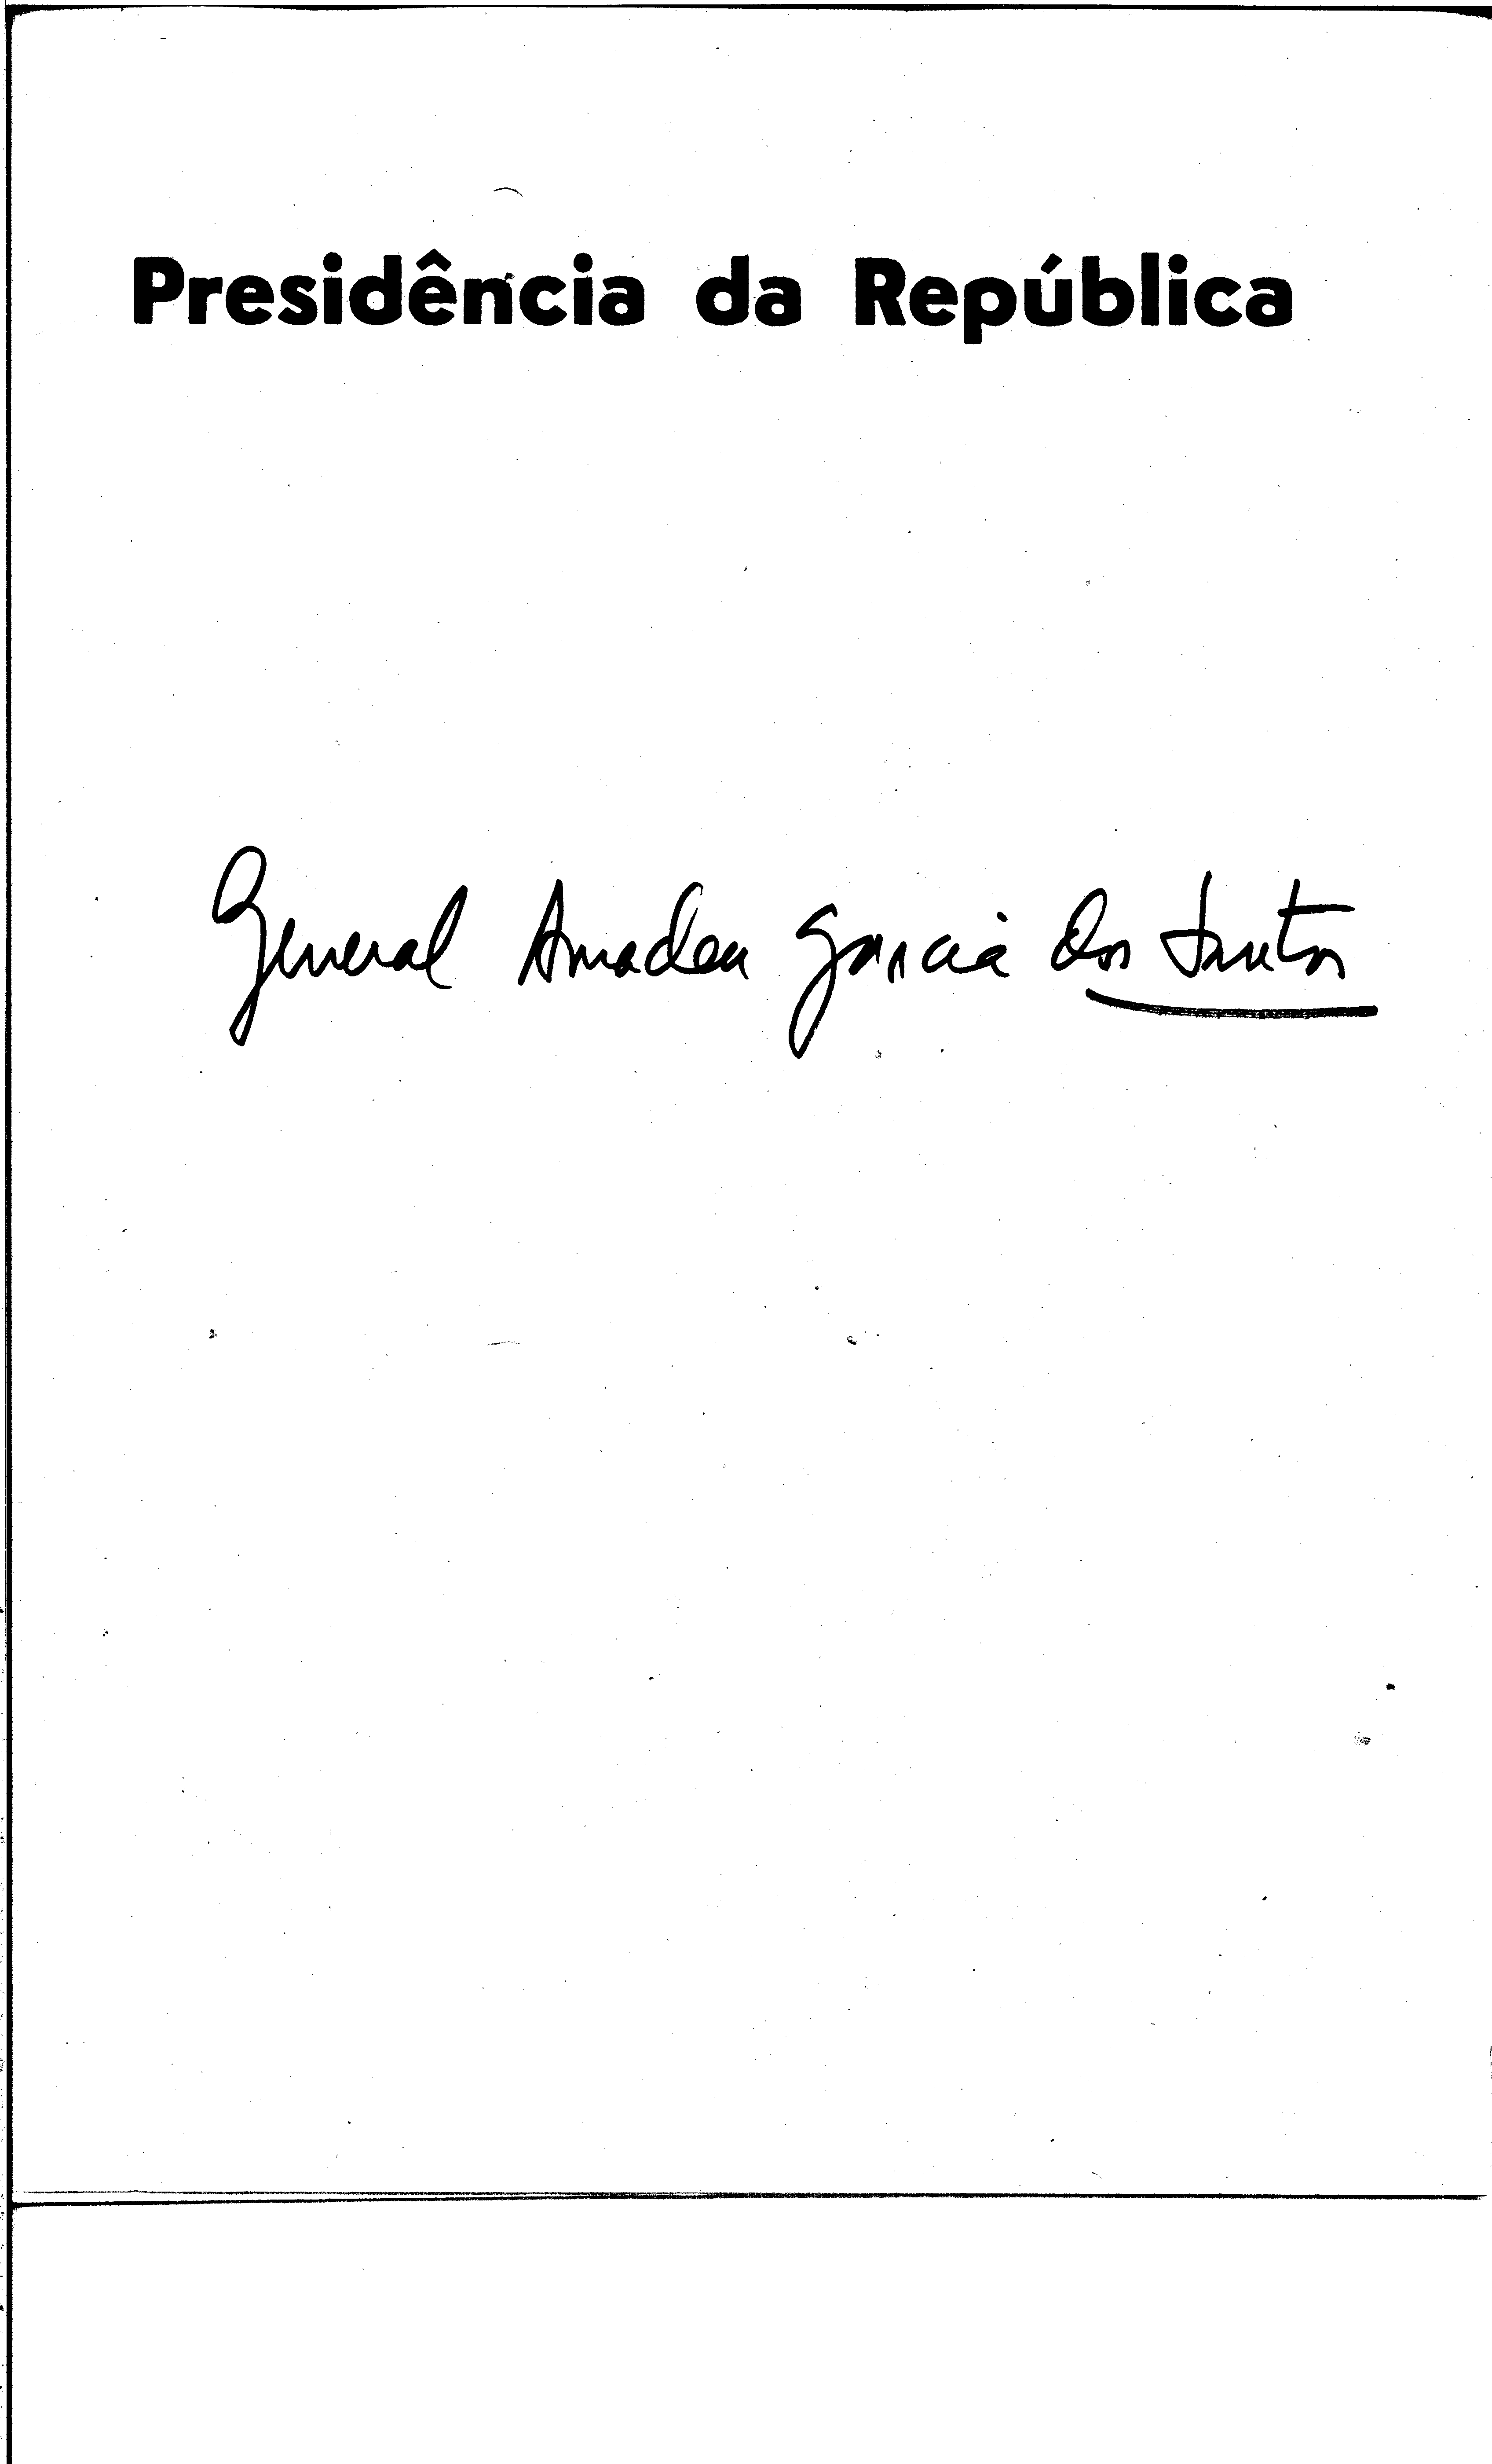 Presidência da República
General Amadeu Garcia dos Santos